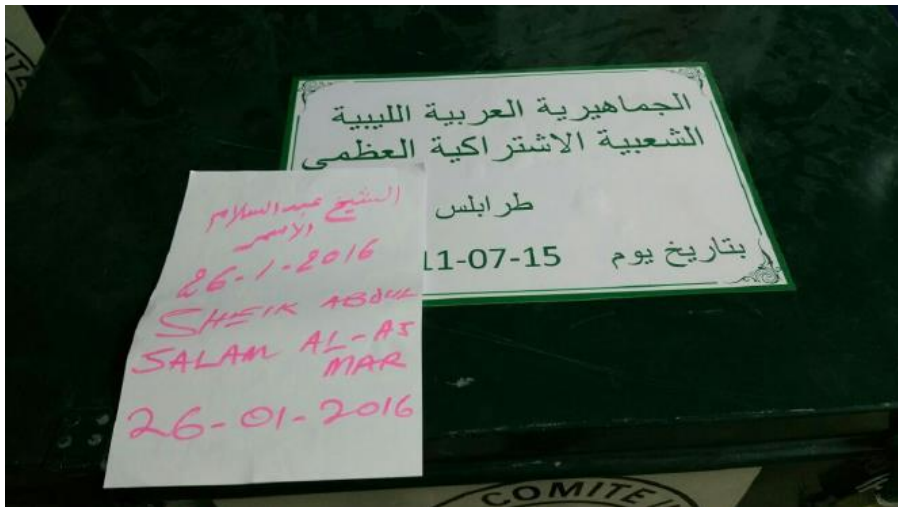 الجماهيرية العربية الليبية
الشعبية الاشتراكية العظمى
طرابلس
بتاريخ يوم 11-07-15
الشيخ عبد السلام
الاسمر
26-1-2016
SHEIK ABDUL
SALAM AL-AS
MAR
26-01-2016
COMITE I